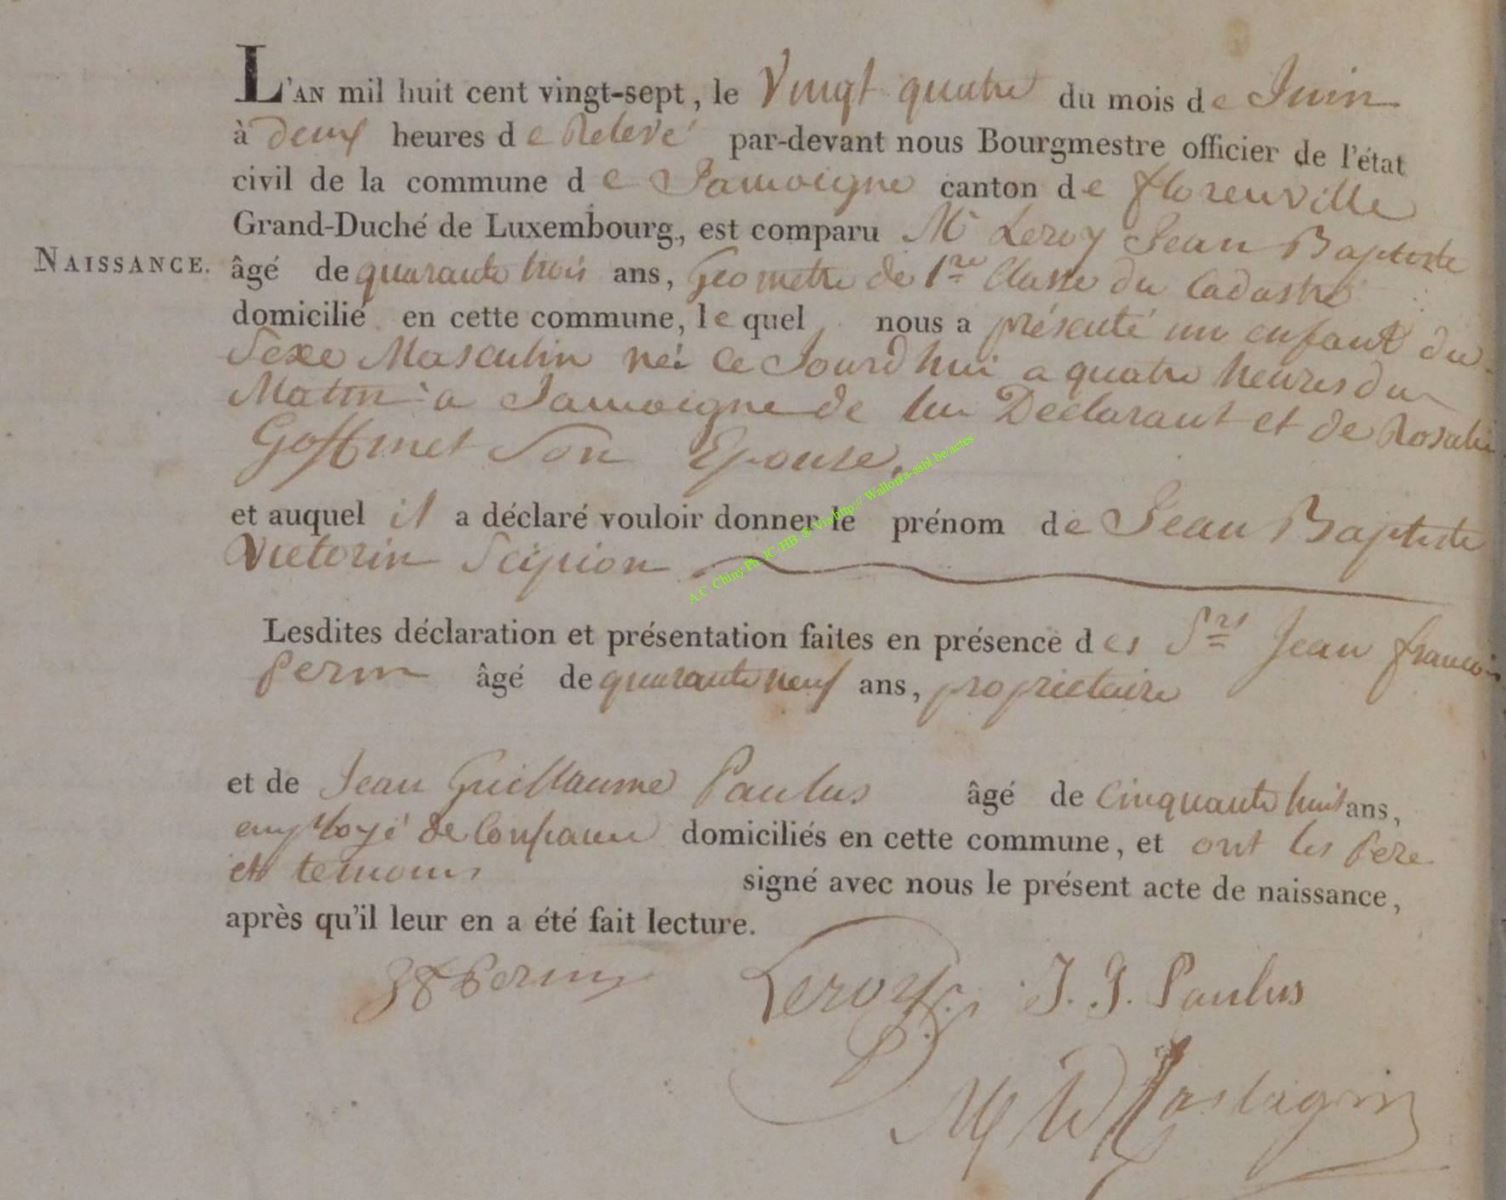 L'AN mil huit cent vingt-sept, le Vingt quatre du mois de Juin
à deux heures de Relevé par-devant nous Bourgmestre officier de l'état
civil de la commune de Jamoigne canton de florenville
Grand-Duché de Luxembourg, est comparu Mr Leroy Jean Baptiste
NAISSANCE. âgé de quarante trois ans, Géometre de 1re Classe du Cadastre
domicilié en cette commune, le quel nous a présenté un enfant du
Sexe Masculin né ce Jourd'hui a quatre heures du
Matin à Jamoigne de lui Déclarant et de Rosalie
Goffinet Son Epouse.
et auquel il a déclaré vouloir donner le prénom de Jean Baptiste
Victorin Scipion
Lesdites déclaration et présentation faites en présence des Srs Jean françois
Perin âgé de quarante neuf ans, propriétaire
et de Jean Guillaume Paulus âgé de Cinquante huit ans,
employé de domiciliés en cette commune, et ont les Pere
et temoins signé avec nous le présent acte de naissance,
après qu'il leur en a été fait lecture.
JF Perin Leroy J. G. Paulus
A.C. Chiny Ph JC-HB & Via http:// Wallonia-asbl.be/actes